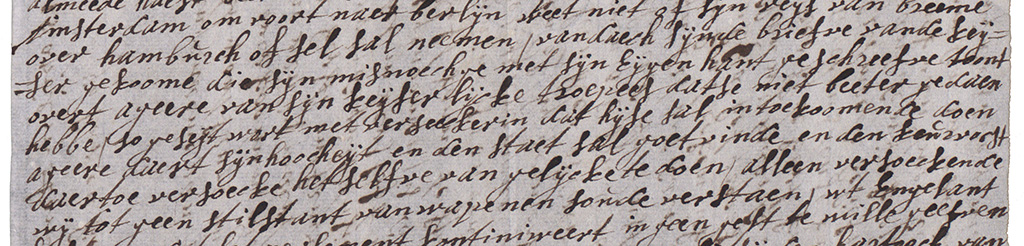 Amsterdam om voort naer berlijn weet niet of sijn reijs van breeme
over hamburch of sel sal neemen / vandaech sijnde briefve vande keij=
=ser gekoome die sijn misnoechge met sijn eijgen hant geschreefve toont
overt ageere van sijn keijserlijcke troepees datse niet beeter gedaen
hebbe / so geseijt wort met versekerin dat hijse sal intoekoomende doen
ageere daert sijnhoocheijt en den staet sal goet vinde en den keurvorst
daertoe versoecke het selfve van gelijcke te doen / alleen versoeckende
wij tot geen stilstant van wapenen soude verstaen / wt Engelant
kontiniweert in geen gelt te wille geefven